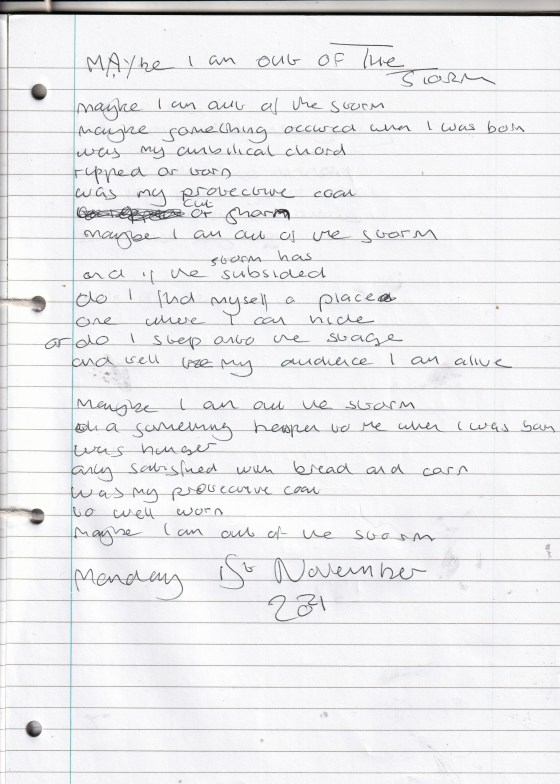 MAYbe I am out OF The
Storm
maybe I am out of the storm
maybe something occured when I was born
was my umbilical chord
ripped or torn
was my protective coat
cut
or shorn
maybe I am out of the storm
storm has
and if the subsided
do I find myself a place
one where I can hide
or do I step onto the stage
and tell my audience I am alive

Maybe I am out the storm
did something happen to me when I was born
was hunger
only satisfied with bread and corn
was my protective coat
to well worn
maybe I am out of the storm
Monday 1st November
2021